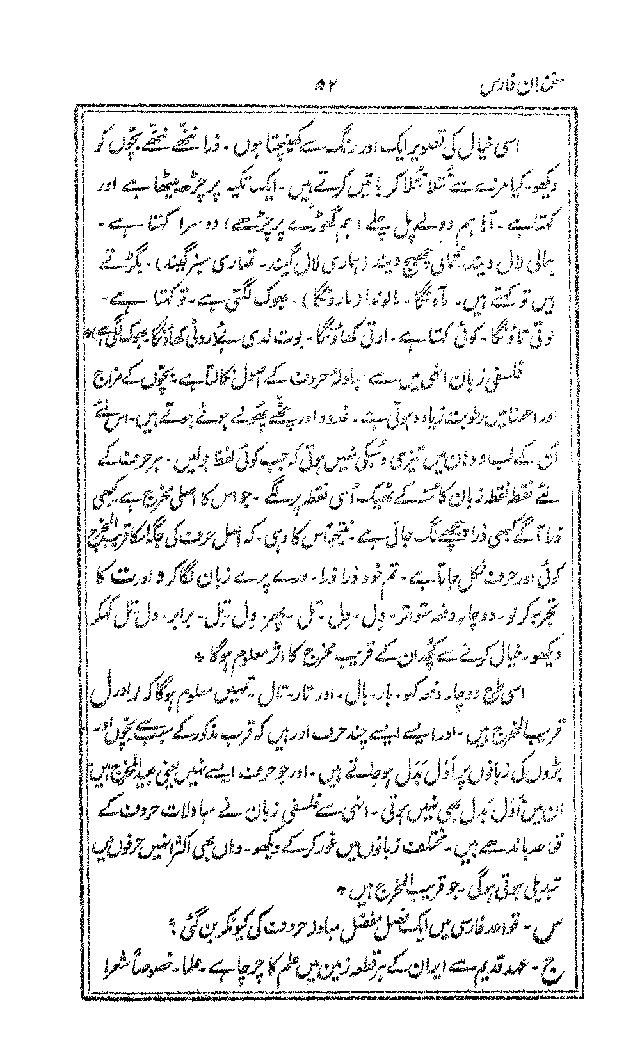 سخندان فارس ۵۲
اسی خیال کی تصویر ایک اور رنگ سے کھینچتا ہوں۔ ذرا ننھے ننھے بچوں کو
دیکھو۔ کیا مزے سے تتلا تتلا کر باتیں کرتے ہیں۔ ایک تکیہ پر چڑھ بیٹھا ہے اور
کہتا ہے۔ آہا ہم دولے پل چلے (ہم گھوڑے پر چڑھے) دوسرا کہتا ہے۔
ہالی لال دیند۔ تمہالی چھبج دیند (ہاری لال گیند۔ تمہاری سبز گیند)۔ بگڑتے
ہیں تو کہتے ہیں۔ مالونگا (مارونگا)۔ بھوک لگتی ہے۔ تو کہتا ہے۔
لوتی تاؤنگا۔ کوئی کہتا ہے۔ اوتی کھاؤنگا۔ بوت لدی ہے (روٹی کھاؤنگا بھوک لگی ہے)*
فلسفی زبان انھی میں سے مبادلۂ حروف کے اصول نکالتا ہے۔ بچوں کے مزاج
اور اعضا میں رطوبت زیادہ ہوتی ہے۔ غدود اور پٹھے پھولے ہوئے ہوتے ہیں۔ اس لئے
اُن کے لب و دہان میں تیزی و سبکی نہیں ہوتی کہ جب کوئی لفظ بولیں۔ ہر حرف کے
لئے نقطہ نقطہ زبان کا تلے کے ٹھیک اُسی نقطہ پر لگے۔ جو اس کا اصلی مخرج ہے کبھی
ذرا آگے کبھی ذرا پیچھے لگ جاتی ہے۔ نتیجہ اس کا وہی۔ کہ اصل حرف کی جگہ اسکا قریب المخرج
کوئی اور حرف نکل جاتا ہے۔ تم خود ذرا ذرا۔ ورے پرے زبان لگا کر و اور ت کا
تجربہ کرلو۔ دو چار دفعہ متواتر۔ دِل۔ دِل۔ تل۔ پھر۔ دِل تِل۔ برابر۔ دل تل تل کہکر
دیکھو۔ خیال کرنے سے کچھ ان کے قریب مخرج کا اثر معلوم ہوگا *
اسی طرح دو چار دفعہ کہو۔ بار۔ بال۔ اور تار۔ تال۔ تمہیں معلوم ہوگا کہ ر اور ل
قریب المخرج ہیں۔ اور ایسے ایسے چند حرف اور ہیں کہ قرب مذکور کے سبب سے بچوں اور
بڑوں کی زبانوں پر اَوَل بَدَل ہو جاتے ہیں۔ اور جو حرف ایسے نہیں یعنی بعید المخرج ہیں
ان میں اَوَل بَدَل بھی نہیں ہوتی۔ انہی سے فلسفی زبان نے مبادلات حروف کے
قواعد باندھے ہیں۔ مختلف زبانوں میں غور کرکے دیکھو۔ وہاں بھی اکثر انہیں حرفوں میں
تبدیلی ہوتی ہوگی۔ جو قریب المخرج ہیں *
س۔ قواعد فارسی میں ایک فصل مفصل مبادلۂ حروف کی کیونکر بن گئی؟
ج۔ عہد قدیم سے ایران کے ہر قطعہ زمین میں علم کا چرچا ہے۔ علما۔ خصوصاً شعرا